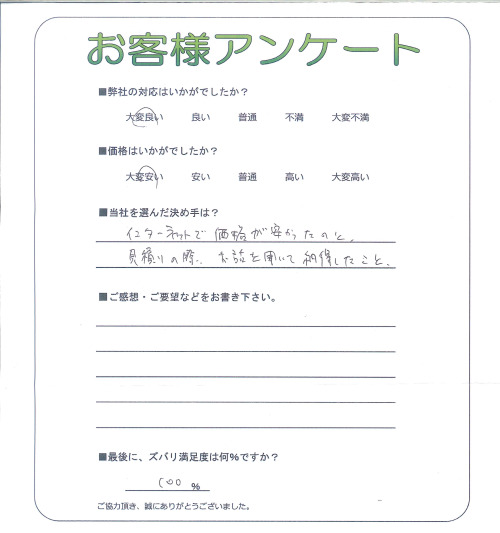 お客様アンケート
■弊社の対応はいかがでしたか？
大変良い　良い　普通　不満　大変不満
■価格はいかがでしたか？
大変安い　安い　普通　高い　大変高い
■当社を選んだ決め手は？
インターネットで価格が安かったのと、
見積りの際、お話を聞いて納得したこと。
■ご感想・ご要望などをお書き下さい。
■最後に、ズバリ満足度は何%ですか？
100 %
ご協力頂き、誠にありがとうございました。